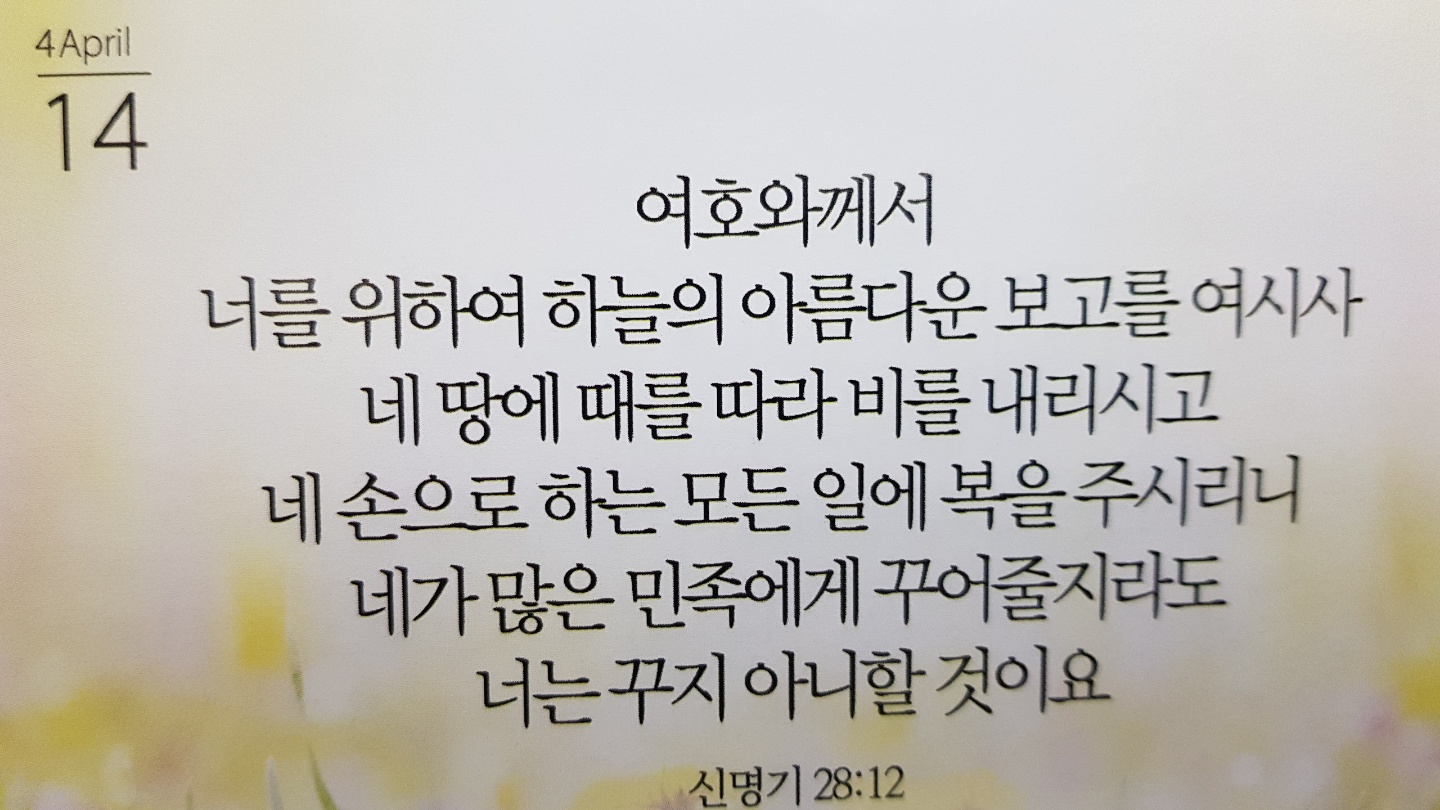 4 April
14
여호와께서
너를 위하여 하늘의 아름다운 보고를 여시사
네 땅에 때를 따라 비를 내리시고
네 손으로 하는 모든 일에 복을 주시리니
네가 많은 민족에게 꾸어줄지라도
너는 꾸지 아니할 것이요
신명기 28:12